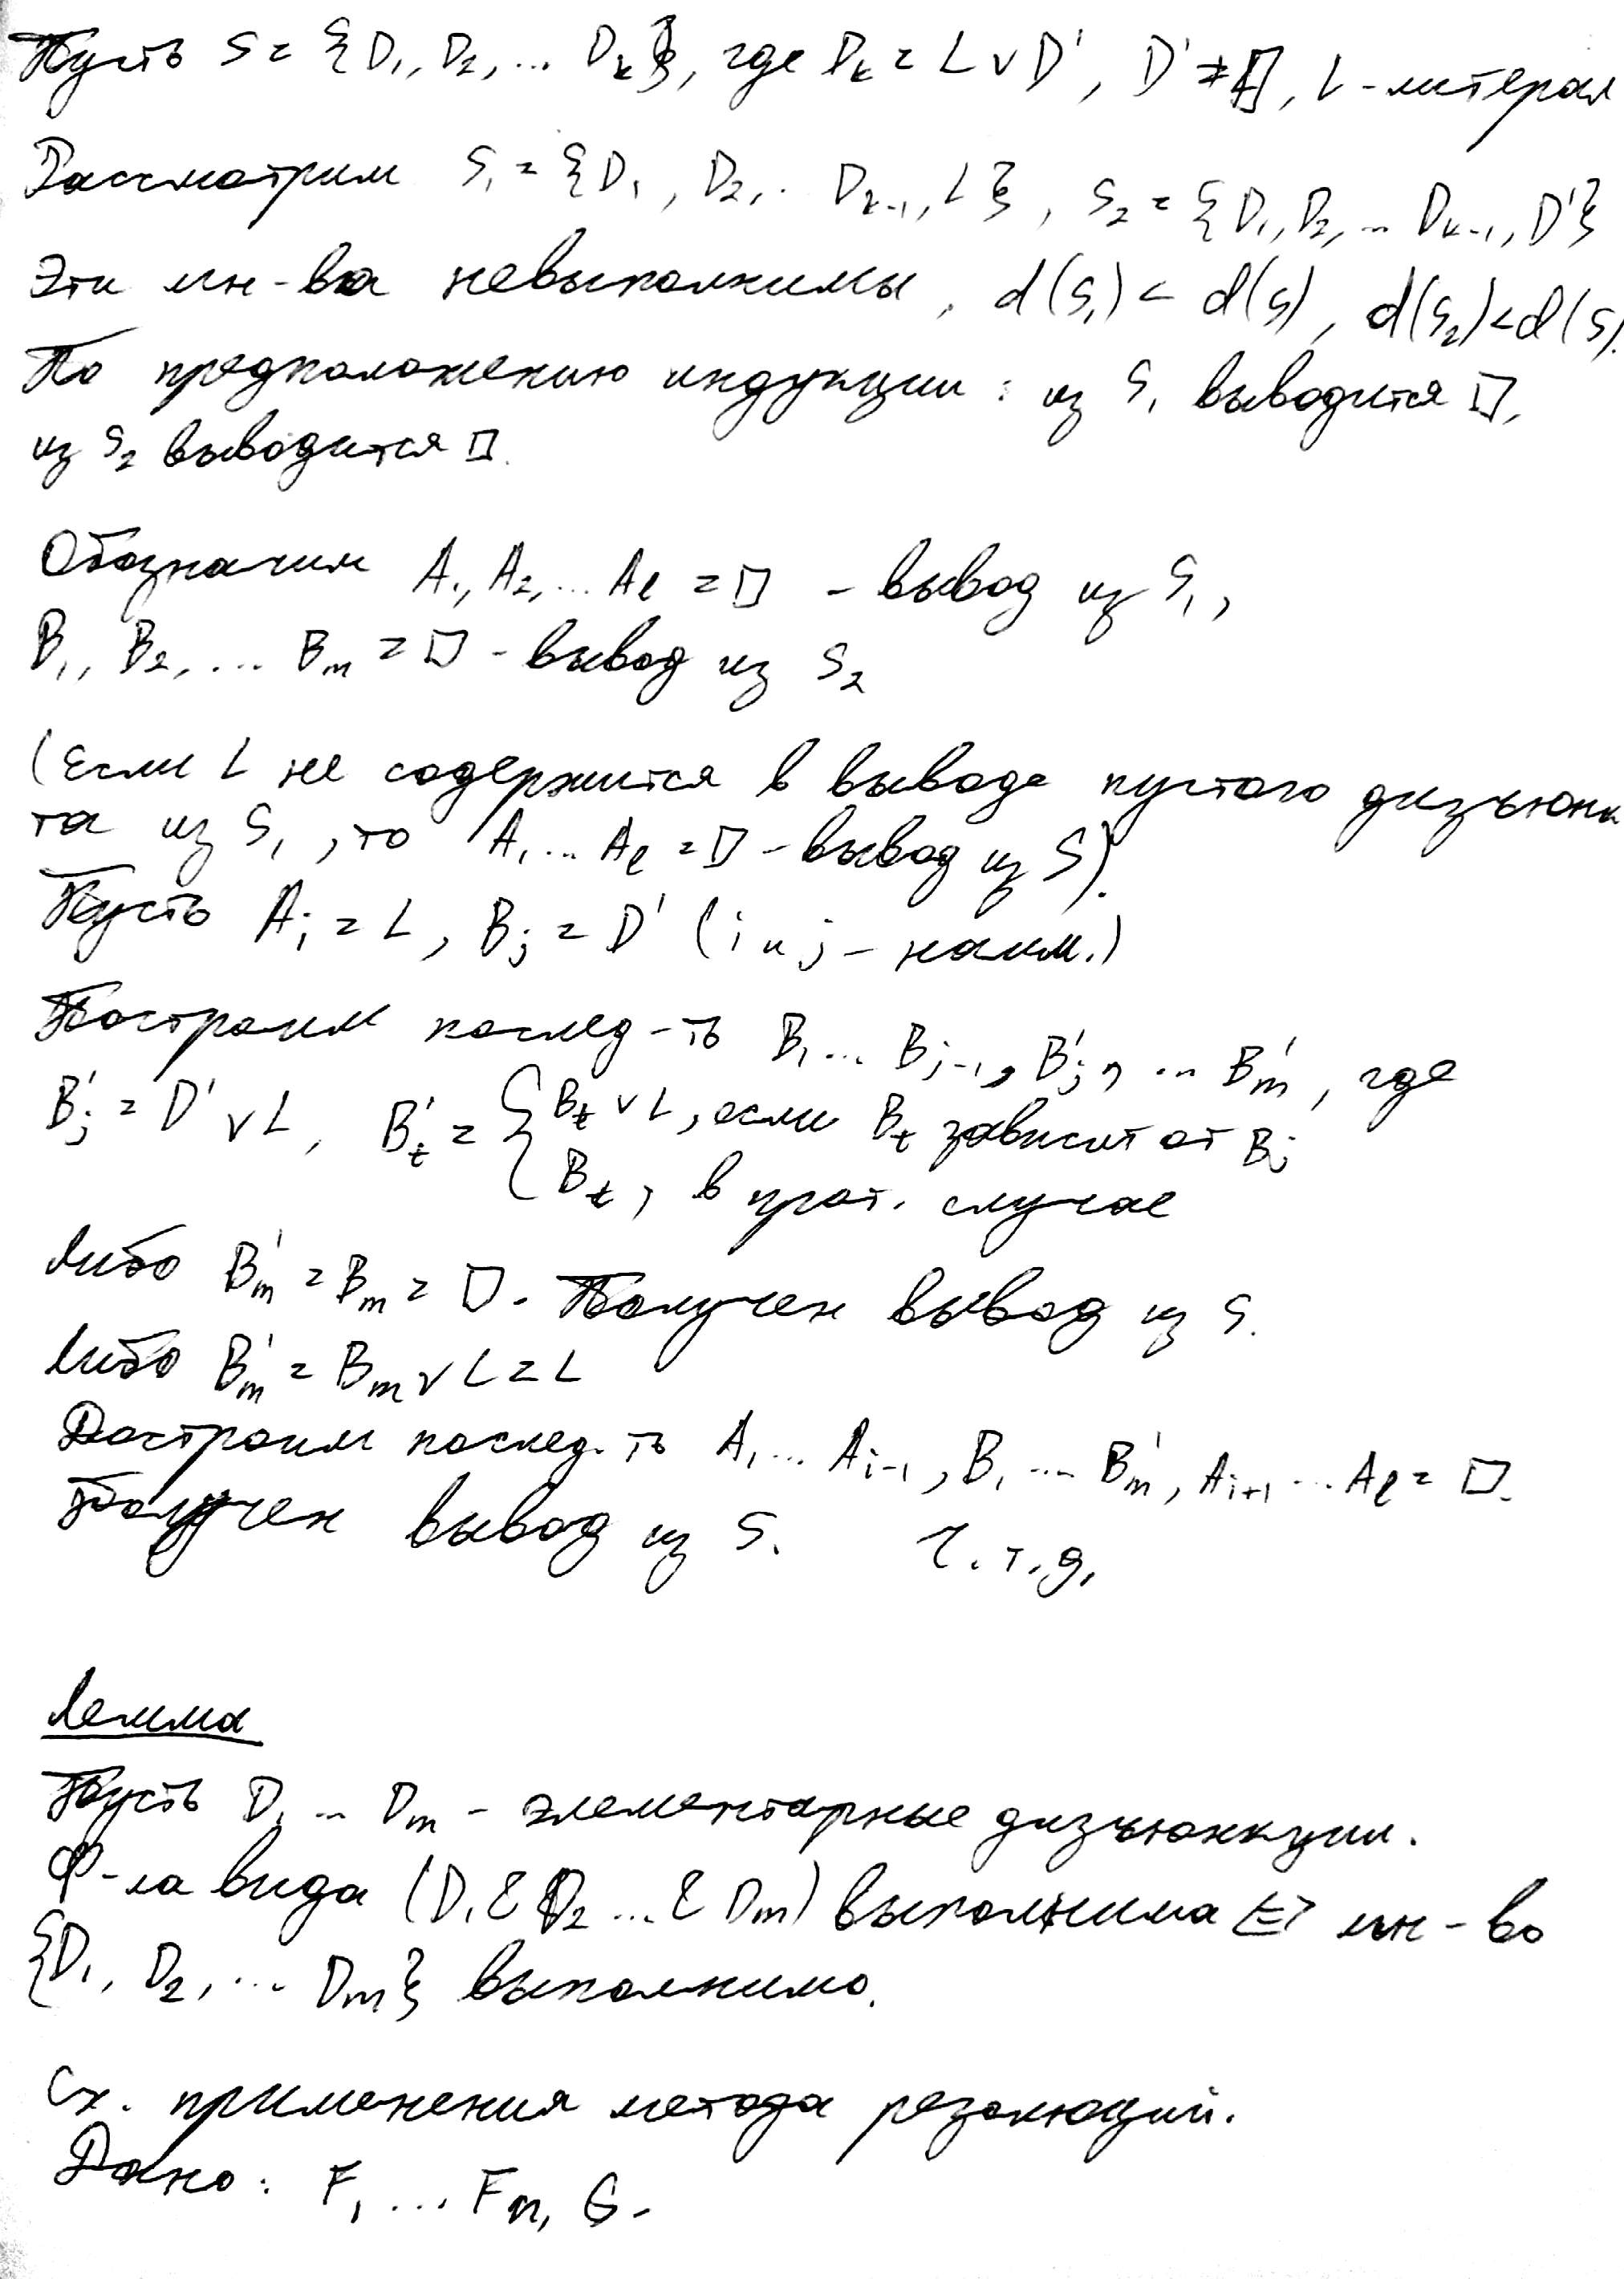 Пусть S = {D₁, D₂, ... Dₖ}, где Dₖ = L ∨ D', D' ≠ □, L - литерал
Рассмотрим S₁ = {D₁, D₂, .. Dₖ₋₁, L}, S₂ = {D₁, D₂, ... Dₖ₋₁, D'}
Эти мн-ва невыполнимы, d(S₁) < d(S), d(S₂) < d(S).
По предположению индукции: из S₁ выводится □,
из S₂ выводится □.
Обозначим A₁, A₂, ... Aₗ = □ - вывод из S₁,
B₁, B₂, ... Bₘ = □ - вывод из S₂
(Если L не содержится в выводе пустого дизъюнк
та из S₁, то A₁ ... Aₗ = □ - вывод из S).
Пусть Aᵢ = L, Bⱼ = D' (i и j - наим.)
Построим послед-ть B₁ ... Bⱼ₋₁, B'ⱼ, ... B'ₘ, где
B'ⱼ = D' ∨ L, B'ₜ = { Bₜ ∨ L, если Bₜ зависит от Bⱼ
Bₜ, в прот. случае
Либо B'ₘ = Bₘ = □. Получен вывод из S.
Либо B'ₘ = Bₘ ∨ L = L
Достроим послед-ть A₁ ... Aᵢ₋₁, B₁ ... B'ₘ, Aᵢ₊₁ ... Aₗ = □.
Получен вывод из S. Ч.т.д.
Лемма
Пусть D₁ ... Dₘ - элементарные дизъюнкции.
Ф-ла вида (D₁ & D₂ ... & Dₘ) выполнима ⇔ мн-во
{D₁, D₂, ... Dₘ} выполнимо.
Сх. применения метода резолюций.
Дано: F₁ ... Fₙ, G.